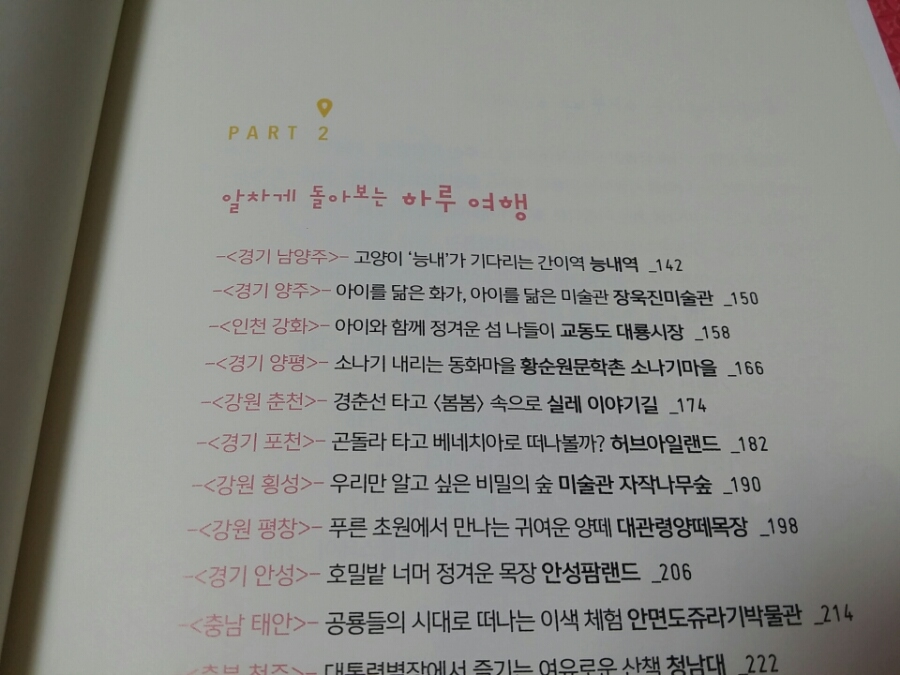 PART 2
알차게 돌아보는 하루 여행
-<경기 남양주>- 고양이 ‘능내’가 기다리는 간이역 능내역 _142
-<경기 양주>- 아이를 닮은 화가, 아이를 닮은 미술관 장욱진미술관 _150
-<인천 강화>- 아이와 함께 정겨운 섬 나들이 교동도 대룡시장 _158
-<경기 양평>- 소나기 내리는 동화마을 황순원문학촌 소나기마을 _166
-<강원 춘천>- 경춘선 타고 〈봄봄〉 속으로 실레 이야기길 _174
-<경기 포천>- 곤돌라 타고 베네치아로 떠나볼까? 허브아일랜드 _182
-<강원 횡성>- 우리만 알고 싶은 비밀의 숲 미술관 자작나무숲 _190
-<강원 평창>- 푸른 초원에서 만나는 귀여운 양떼 대관령양떼목장 _198
-<경기 안성>- 호밀밭 너머 정겨운 목장 안성팜랜드 _206
-<충남 태안>- 공룡들의 시대로 떠나는 이색 체험 안면도쥬라기박물관 _214
-<충북 청주>- 대통령별장에서 즐기는 여유로운 산책 청남대 _222